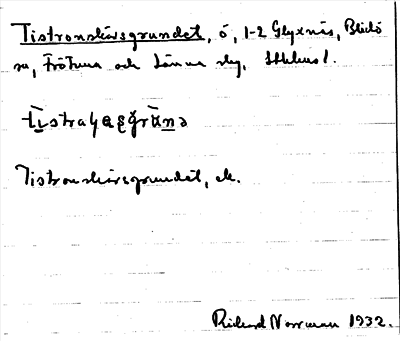 Tistronskärsgrundet, ö, 1-2 Glyxnäs, Blidö
sn, Frötuna och Länna slg, Sthlms l.
Tistronskärsgrundet, ek.
Richard Norrman 1932.